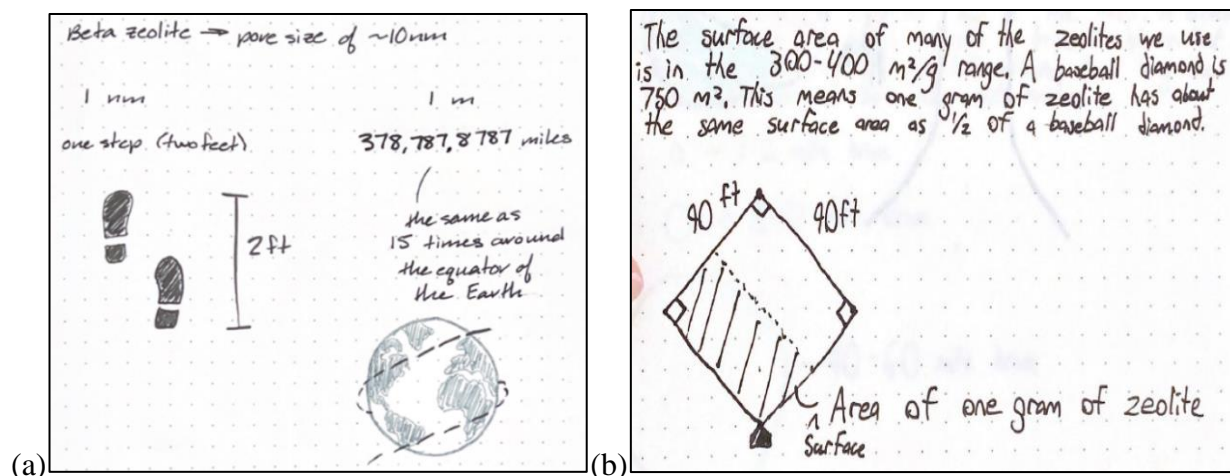 Beta zeolite → pore size of ~10nm
1 nm
1 m
one step (two feet)
378,787,8787 miles
2ft
the same as
15 times around
the equator of
the Earth
(a)
The surface area of many of the zeolites we use
is in the 300-400 m²/g range. A baseball diamond is
750 m². This means one gram of zeolite has about
the same surface area as 1/2 of a baseball diamond.
90 ft
90ft
Area of one gram of zeolite
^
Surface
(b)